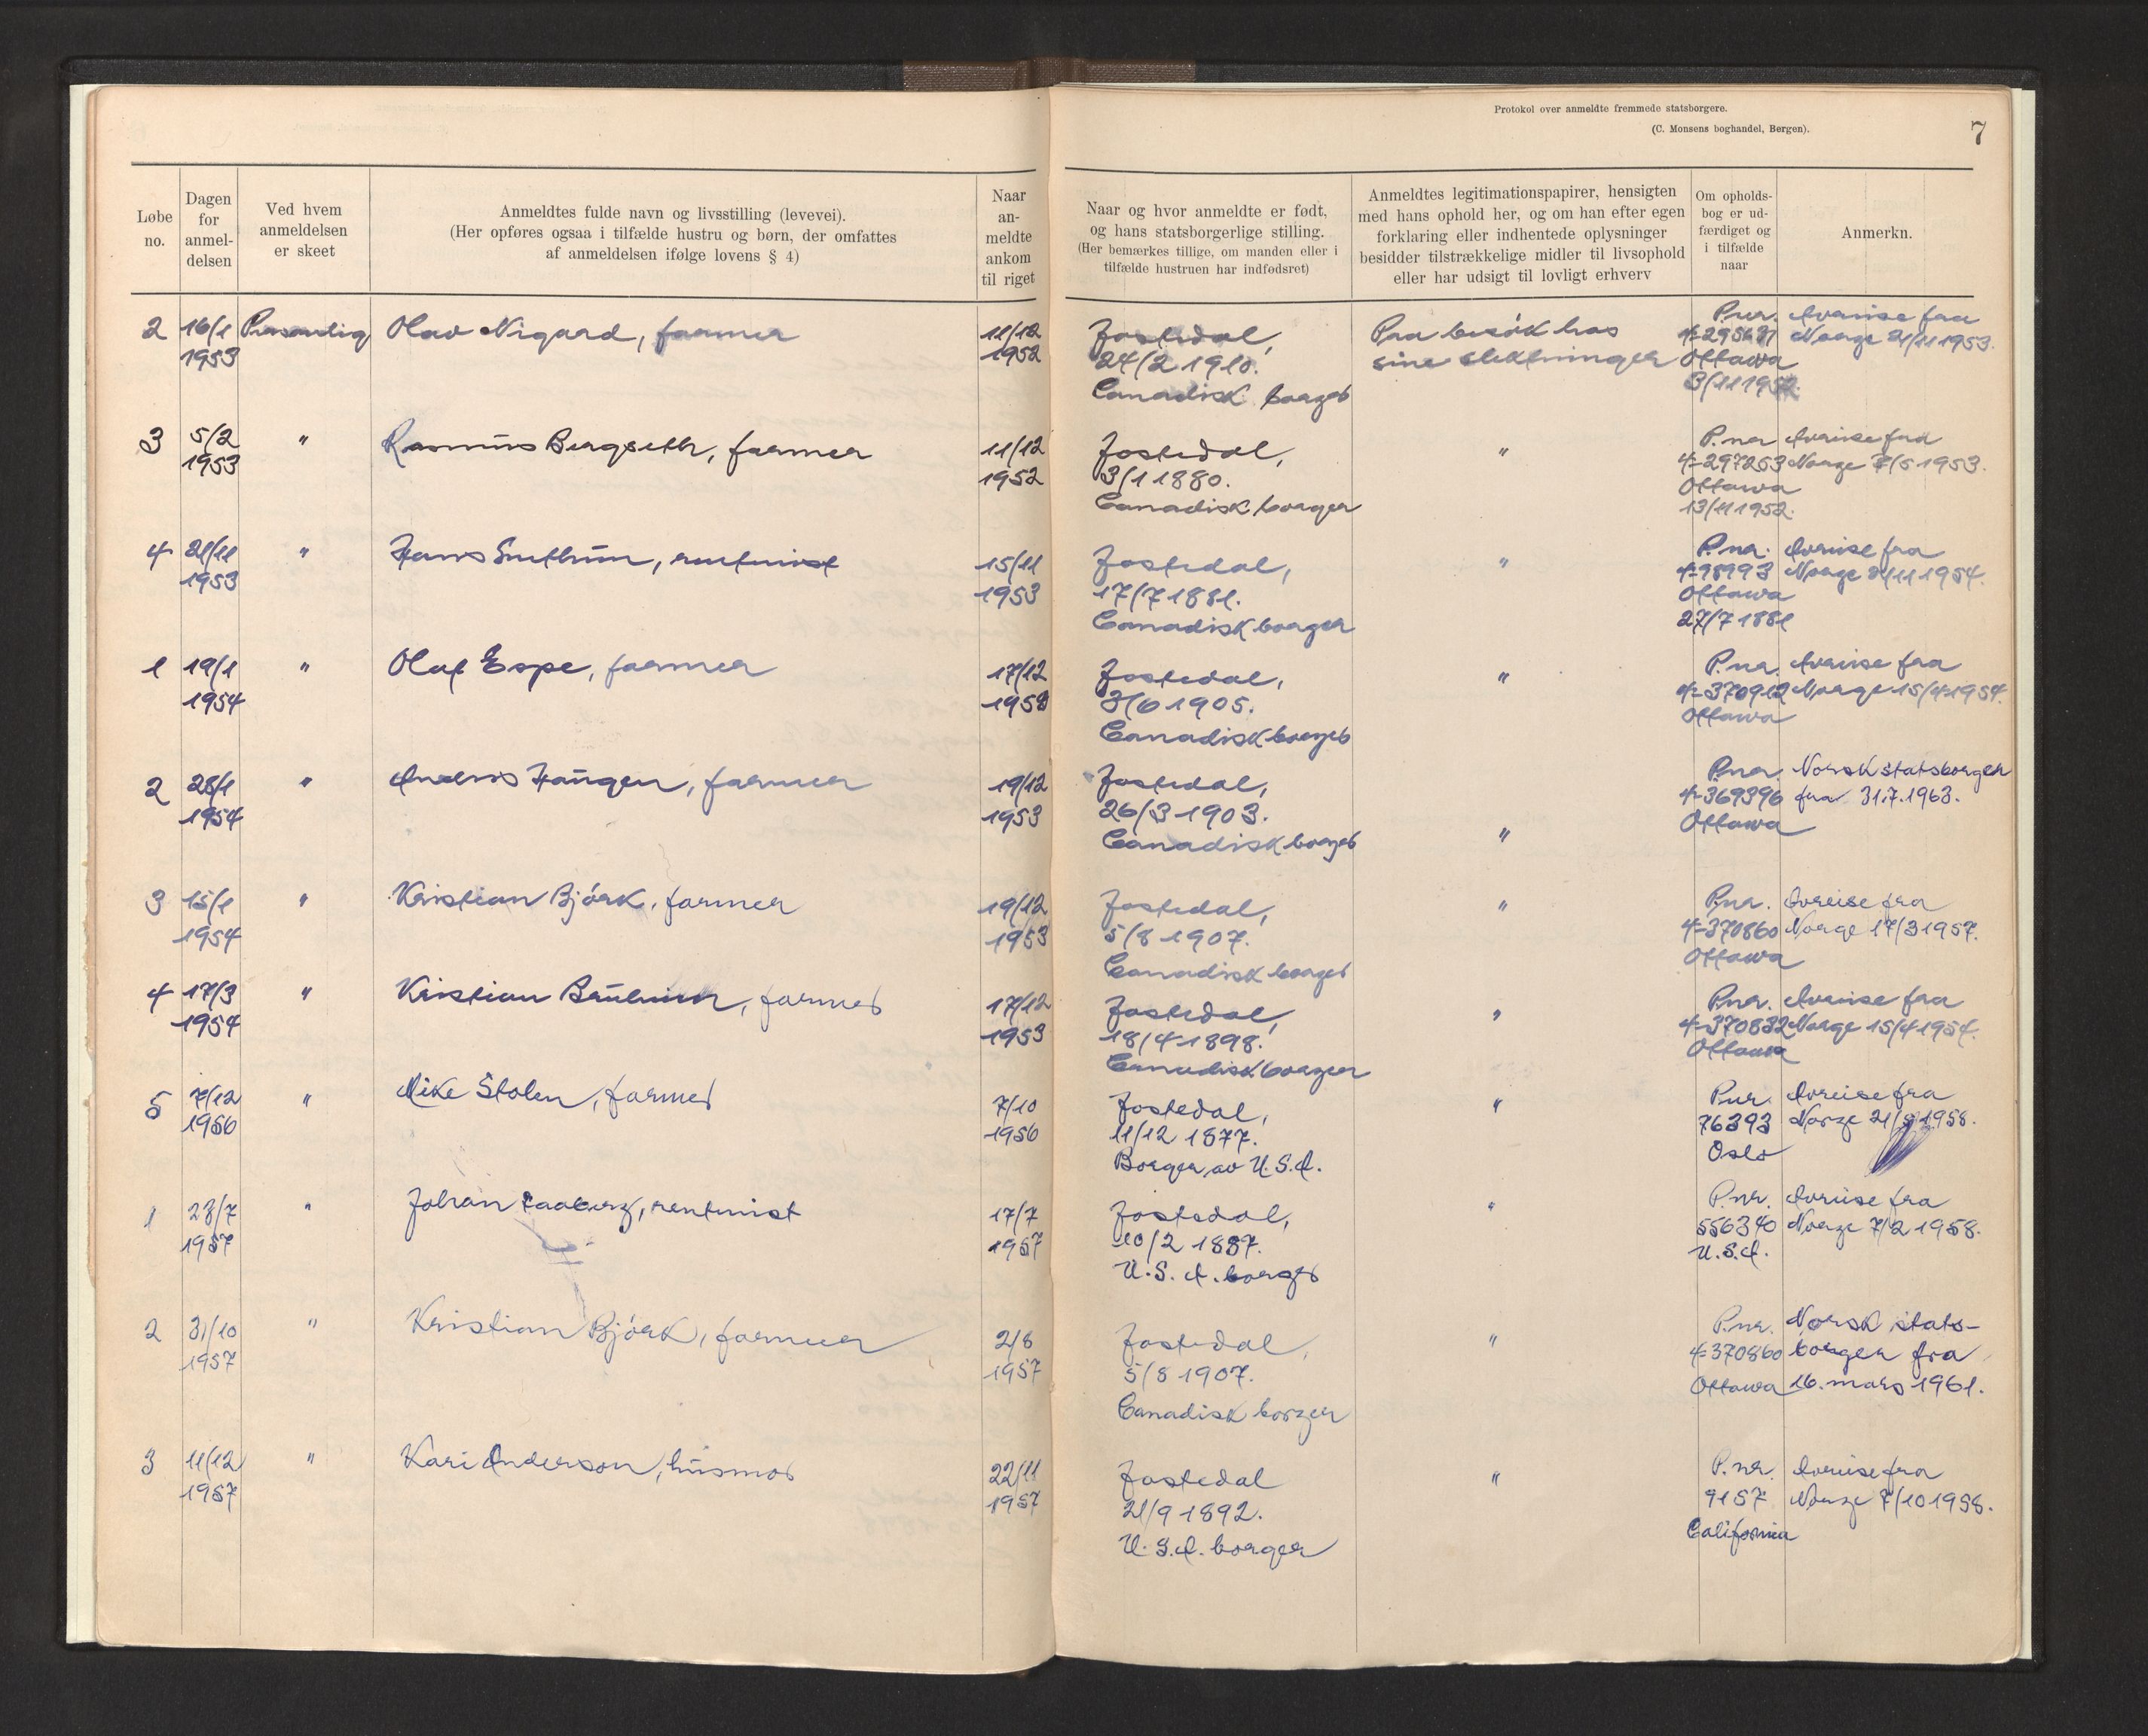 Protokol over anmeldte fremmede statsborgere.
(C. Monsens boghandel, Bergen).
7
Løbe no.
Dagen for anmel-delsen
Ved hvem anmeldelsen er skeet
Anmeldtes fulde navn og livsstilling (levevei).
(Her opføres ogsaa i tilfælde hustru og børn, der omfattes
af anmeldelsen ifølge lovens § 4)
Naar an-meldte ankom til riget
Naar og hvor anmeldte er født,
og hans statsborgerlige stilling.
(Her bemærkes tillige, om manden eller i
tilfælde hustruen har indfødsret)
Anmeldtes legitimationspapirer, hensigten
med hans ophold her, og om han efter egen
forklaring eller indhentede oplysninger
besidder tilstrækkelige midler til livsophold
eller har udsigt til lovligt erhverv
Om opholds-bog er ud-færdiget og i tilfælde naar
Anmerkn.
2 16/1 Personlig Olav Nigard, farmer 11/12 Jostedal, Paa besök hos P.nr. Avreise fra
1953 1952 24/2 1910. sine slektninger 4-295637 Norge 21/11 1953.
Canadisk borger Ottawa
3/11 1952.
3 5/2 " Rasmus Bergseth, farmer 11/12 Jostedal, " P.nr Avreise fra
1953 1952 3/1 1880. 4-297253 Norge 7/5 1953.
Canadisk borger Ottawa
13/11 1952.
4 21/11 " Hans Snethun, rentenist 15/11 Jostedal, " P.nr. Avreise fra
1953 1953 17/7 1881. 4-98993 Norge 21/11 1954.
Canadisk borger Ottawa
27/7 1881
1 19/1 " Olaf Espe, farmer 17/12 Jostedal, " P.nr. Avreise fra
1954 1953 3/6 1905. 4-370912 Norge 15/4 1954.
Canadisk borger Ottawa
2 28/1 " Anders Haugen, farmer 19/12 Jostedal, P.nr. Norsk statsborger
1954 1953 26/3 1903. 4-369396 fra 31.7.1963.
Canadisk borger " Ottawa
3 15/1 " Kristian Björk, farmer 19/12 Jostedal, " P.nr. Avreise fra
1954 1953 5/8 1907. 4-370860 Norge 17/3 1957.
Canadisk borger Ottawa
4 17/3 " Kristian farmer 17/12 Jostedal, " P.nr. Avreise fra
1954 1953 18/4 1898. 4-370832 Norge 15/4 1954.
Canadisk borger Ottawa
5 7/12 " Mike Stolen, farmer 7/10 Jostedal, " P.nr. Avreise fra
1956 1956 11/12 1877. 76393 Norge 21/9 1958.
Borger av U.S.A. Oslo
1 23/7 " Johan Faaberg, rentenist 17/7 Jostedal, " P.nr. Avreise fra
1957 1957 10/2 1887. 556340 Norge 7/2 1958.
U.S.A. borger U.S.A.
2 31/10 " Kristian Björk, farmer 2/8 Jostedal, " P.nr. Norsk stats-
1957 1957 5/8 1907. 4-370860 borger fra
Canadisk borger Ottawa 16. mars 1961.
3 11/12 " Kari Anderson, husmor 22/11 Jostedal " P.nr. Avreise fra
1957 1957 21/9 1892. 9157 Norge 7/10 1958.
U.S.A. borger California